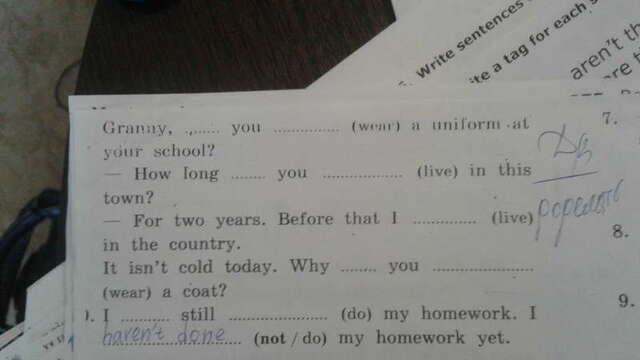 Write sentences
te a tag for each s
aren't th
re t
Granny, ....... you .............. (wear) a uniform at
your school?
— How long ........ you ................. (live) in this
town?
— For two years. Before that I ............. (live)
in the country.
It isn't cold today. Why ........ you .....................
(wear) a coat?
). I .......... still ................. (do) my homework. I
haven't done (not / do) my homework yet.
7.
8.
9.